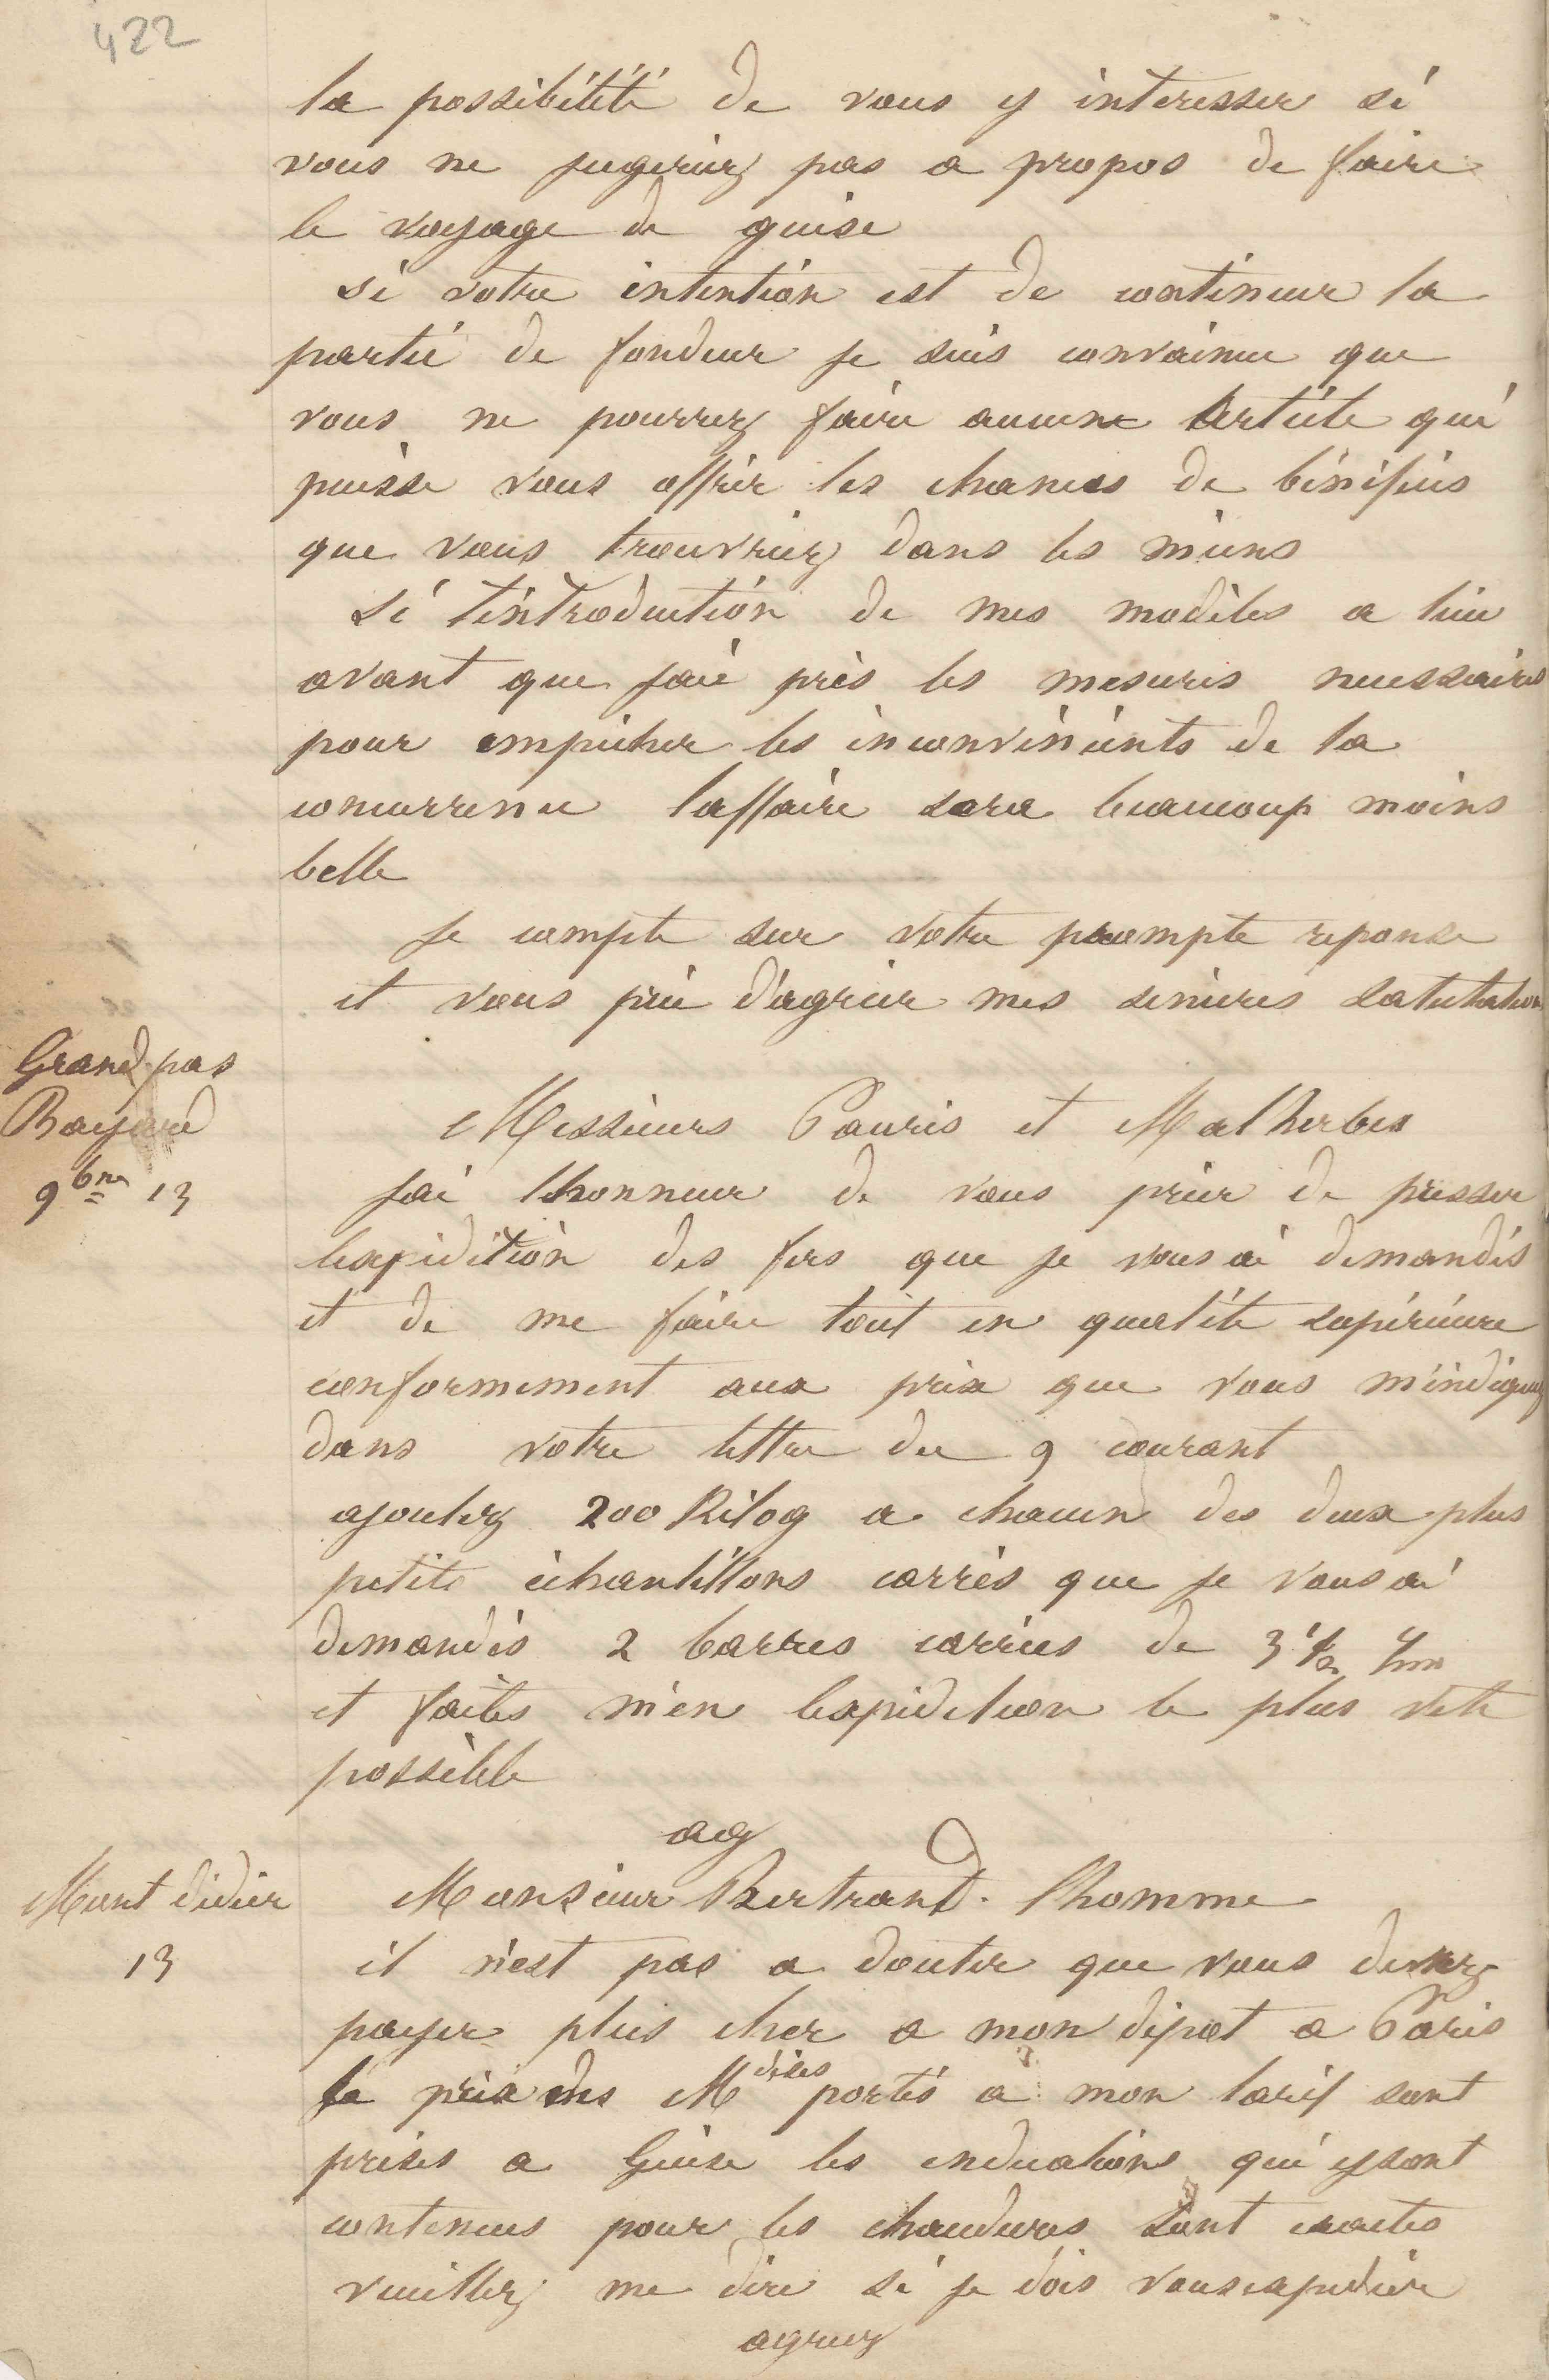 422
la possibilité de vous y interesser si
vous ne jugeriez pas a propos de faire
le voyage de guise
si votre intention est de continuer la
partie de fondeur je suis convaincu que
vous ne pourrez faire aucune article qui
puisse vous offrir les chances de bénéfices
que vous trouvriez dans les miens
si l'introduction de mes modèles a lieu
avant que jaie pris les mesures necessaires
pour empêcher les inconvénients de la
concurrence laffaire sera beaucoup moins
belle
je compte sur votre prompte reponse
et vous prie d'agréer mes sincères salutations
Grand pas
Bayard
9bre 13
Messieurs Pauris et Malherbes
jai lhonneur de vous prier de presser
lexpédition des fers que je vous ai demandés
et de me faire tout en qualité supérieure
conformement aux prix que vous m'indiquez
dans votre lettre du 9 courant
ajoutez 200 Kilog a chacun des deux plus
petits échantillons carrés que je vous ai
demandés 2 barres carrées de 3 1/2 c/m
et faites m'en lexpedition le plus vite
possible
ag
Mont didier
13
Monsieur Bertrand. Lhomme
il n'est pas a douter que vous devrez
payer plus cher a mon dépot a Paris
le prix des Mdises portés a mon tarif sont
prises a Guise les indications qui y sont
contenues pour les chaudieres sont exactes
veuillez me dire si je dois vous expedier
agreez